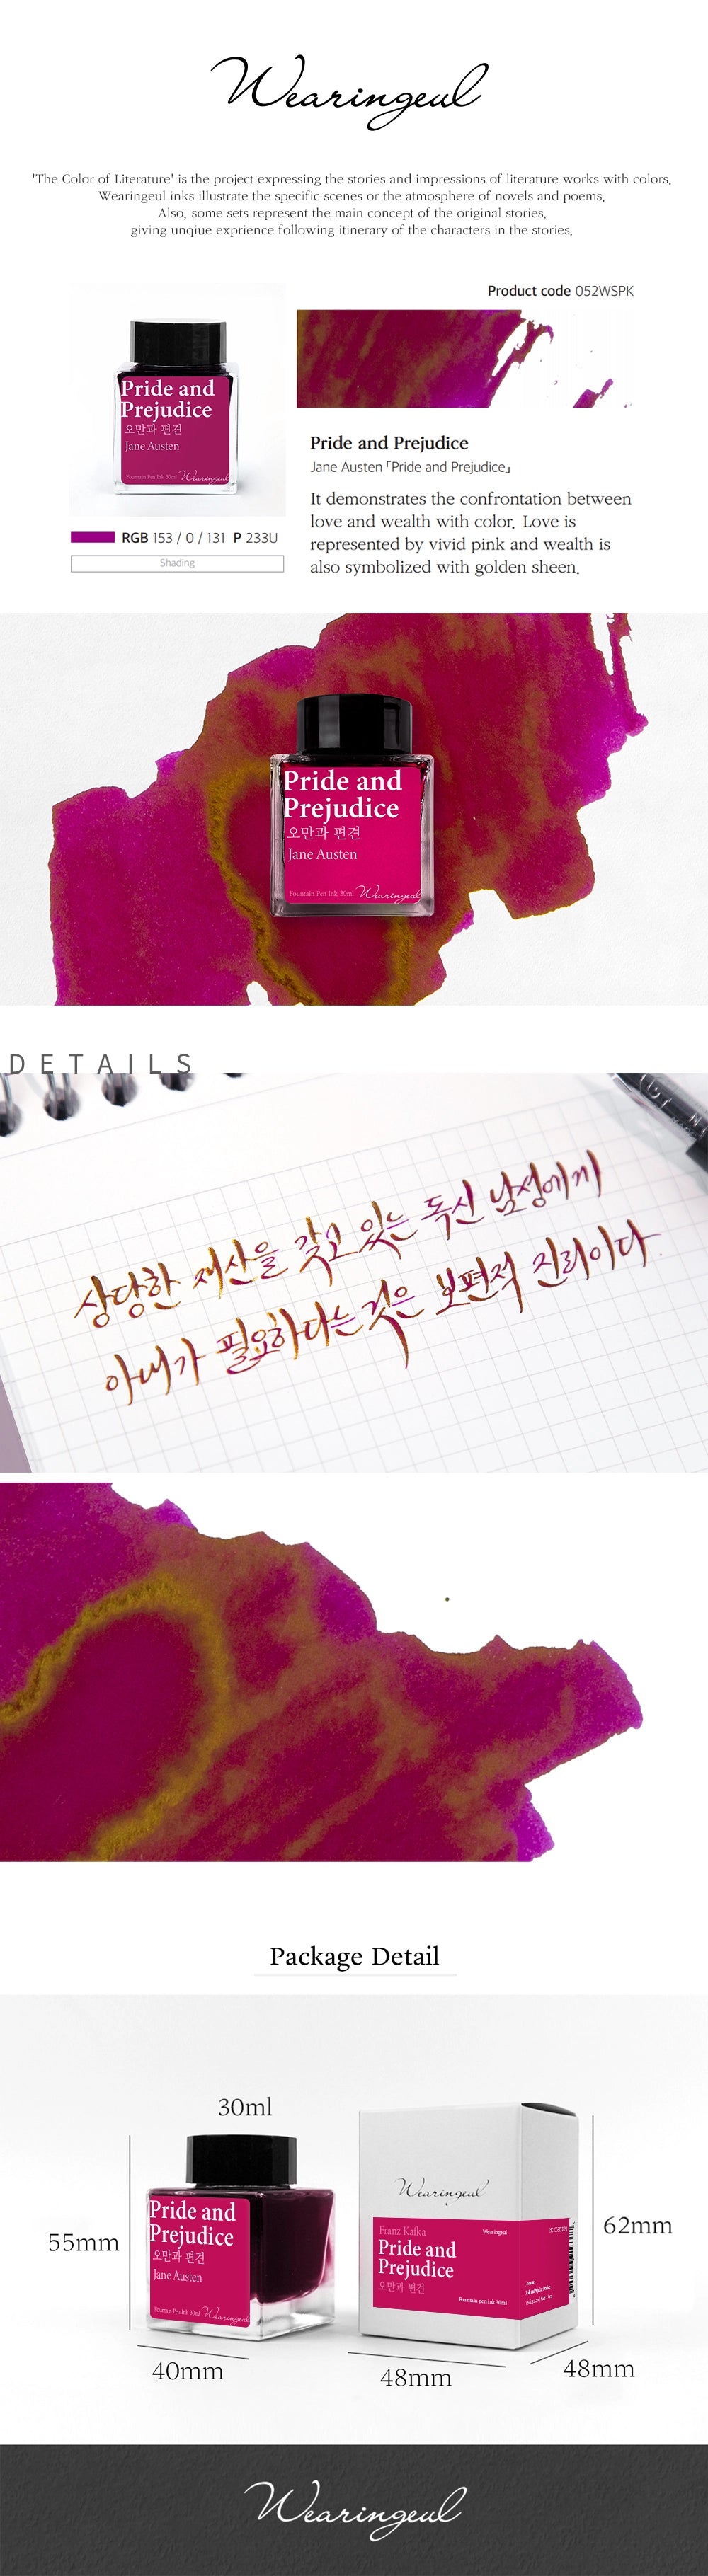 Wearingeul
'The Color of Literature' is the project expressing the stories and impressions of literature works with colors.
Wearingeul inks illustrate the specific scenes or the atmosphere of novels and poems.
Also, some sets represent the main concept of the original stories,
giving unqiue exprience following itinerary of the characters in the stories.
Product code 052WSPK
Pride and
Prejudice
오만과 편견
Jane Austen
Fountain Pen Ink 30ml Wearingeul
RGB 153 / 0 / 131 P 233U
Shading
Pride and Prejudice
Jane Austen「Pride and Prejudice」
It demonstrates the confrontation between
love and wealth with color. Love is
represented by vivid pink and wealth is
also symbolized with golden sheen.
Pride and
Prejudice
오만과 편견
Jane Austen
Fountain Pen Ink 30ml Wearingeul
DETAILS
상당한 재산을 갖고 있는 독신 남성에게
아내가 필요하다는 것은 보편적 진리이다.
Package Detail
30ml
55mm
Pride and
Prejudice
오만과 편견
Jane Austen
Fountain Pen Ink 30ml Wearingeul
40mm
Wearingeul
Franz Kafka
Wearingeul
Pride and
Prejudice
오만과 편견
Fountain pen ink 30ml
62mm
48mm
48mm
Wearingeul